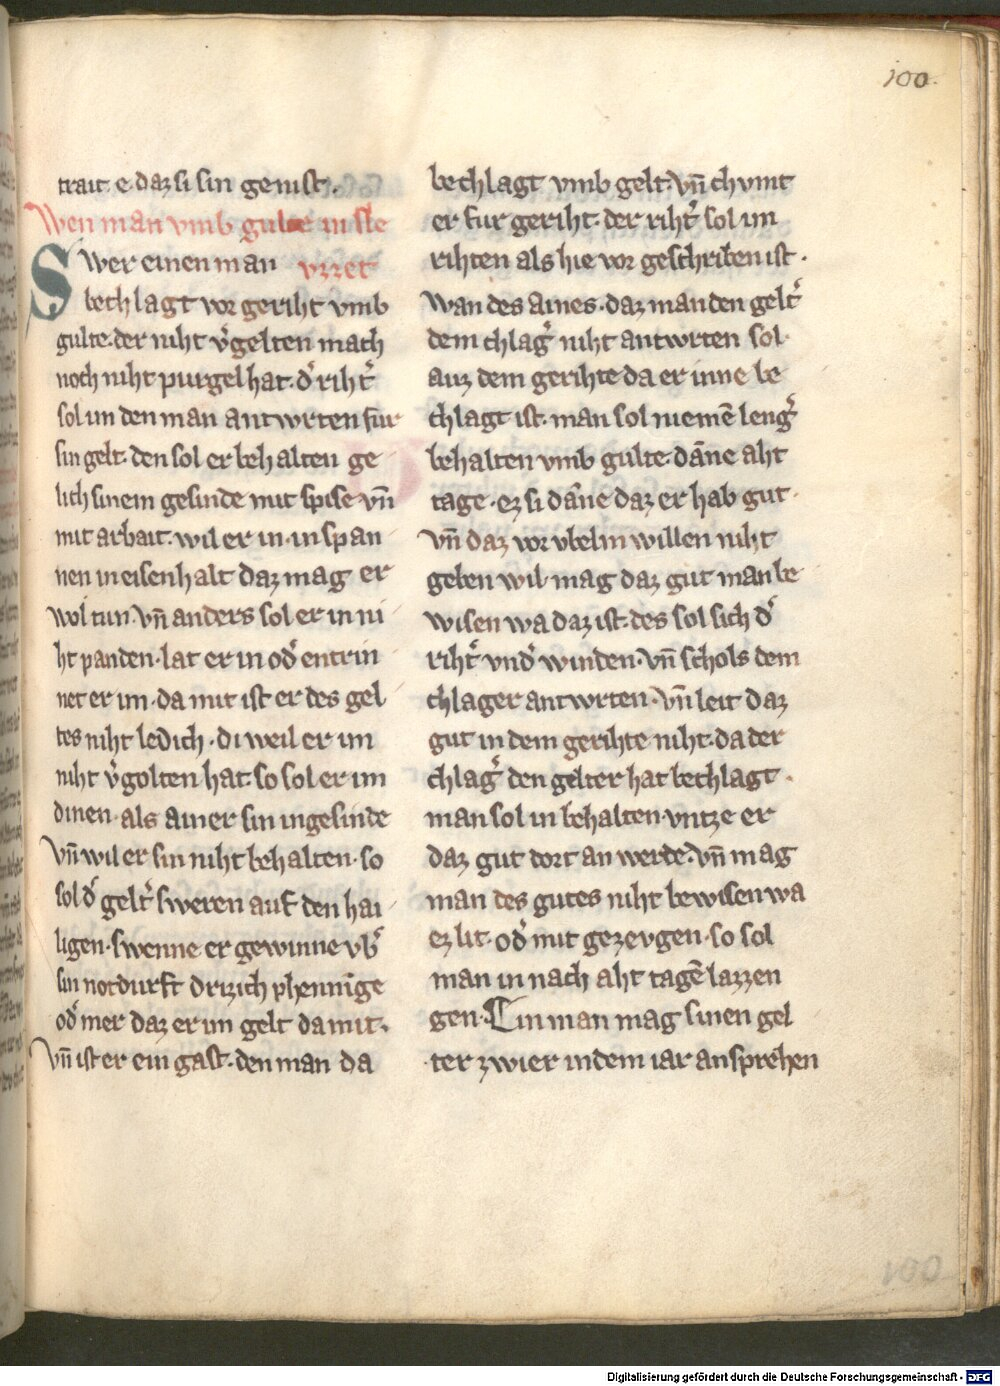 100.
trait e daz si sin genist.
Wen man vmb gulte in sle
Swer einen man vzzet
bechlagt vor geriht vmb
gulte. der niht v̾gelten mach
noch niht purgel hat. d̾ riht̾
sol im den man antwrten fur
sin gelt. den sol er behalten ge
lich sinem gesinde mit spise vn̄
mit arbait. wil er in in span
nen in eisenhalt daz mag er
wol tun. vn̄ anders sol er in ni
ht panden. lat er in od̾ entrin
net er im. da mit ist er des gel
tes niht ledich. di weil er im
niht v̾golten hat. so sol er im
dinen als ainer sin ingesinde
vn̄ wil er sin niht behalten. so
sol d̾ gelt̾ sweren auf den hai
ligen. swenne er gewinne vb̾
sin notdurft drizich phennige
od̾ mer daz er im gelt da mit.
vn̄ ist er ein gast. den man da
bechlagt vmb gelt. vn̄ chvmt
er fur geriht. der riht̾ sol im
rihten als hie vor geschriben ist.
wan des aines. daz man den gelt̾
dem chlag̾ niht antwrten sol.
auz dem gerihte da er inne be
chlagt ist. man sol niemē leng̾
behalten vmb gulte. dāne aht
tage. ez si dāne daz er hab gut.
vn̄ daz vor vbelm willen niht
geben wil. mag daz gut man be
wisen wa daz ist. des sol sich d̾
riht̾ vnd̾ winden. vn̄ schols dem
chlager antwrten. vn̄ leit daz
gut in dem gerihte niht. da der
chlag̾ den gelter hat bechlagt.
man sol in behalten. vntze er
daz gut dort an werde. vn̄ mag
man des gutes niht bewisen wa
ez lit. od̾ mit gezevgen. so sol
man in nach aht tagē lazzen
gen. Ein man mag sinen gel
ter zwier in dem iar ansprehen
100
Digitalisierung gefördert durch die Deutsche Forschungsgemeinschaft - DFG